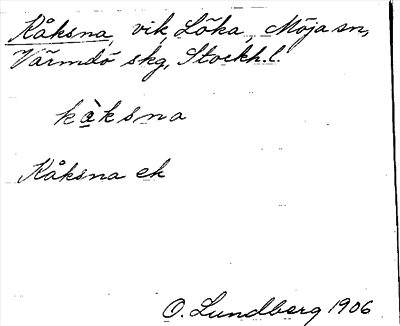 Kåksna, vik, Löka, Möja sn,
Värmdö skg, Stockh.l.
kàksna
Kåksna ek
O. Lundberg 1906